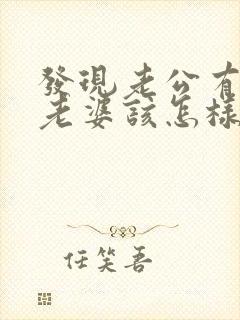 發現老公有
老婆該怎樣
任笑吾